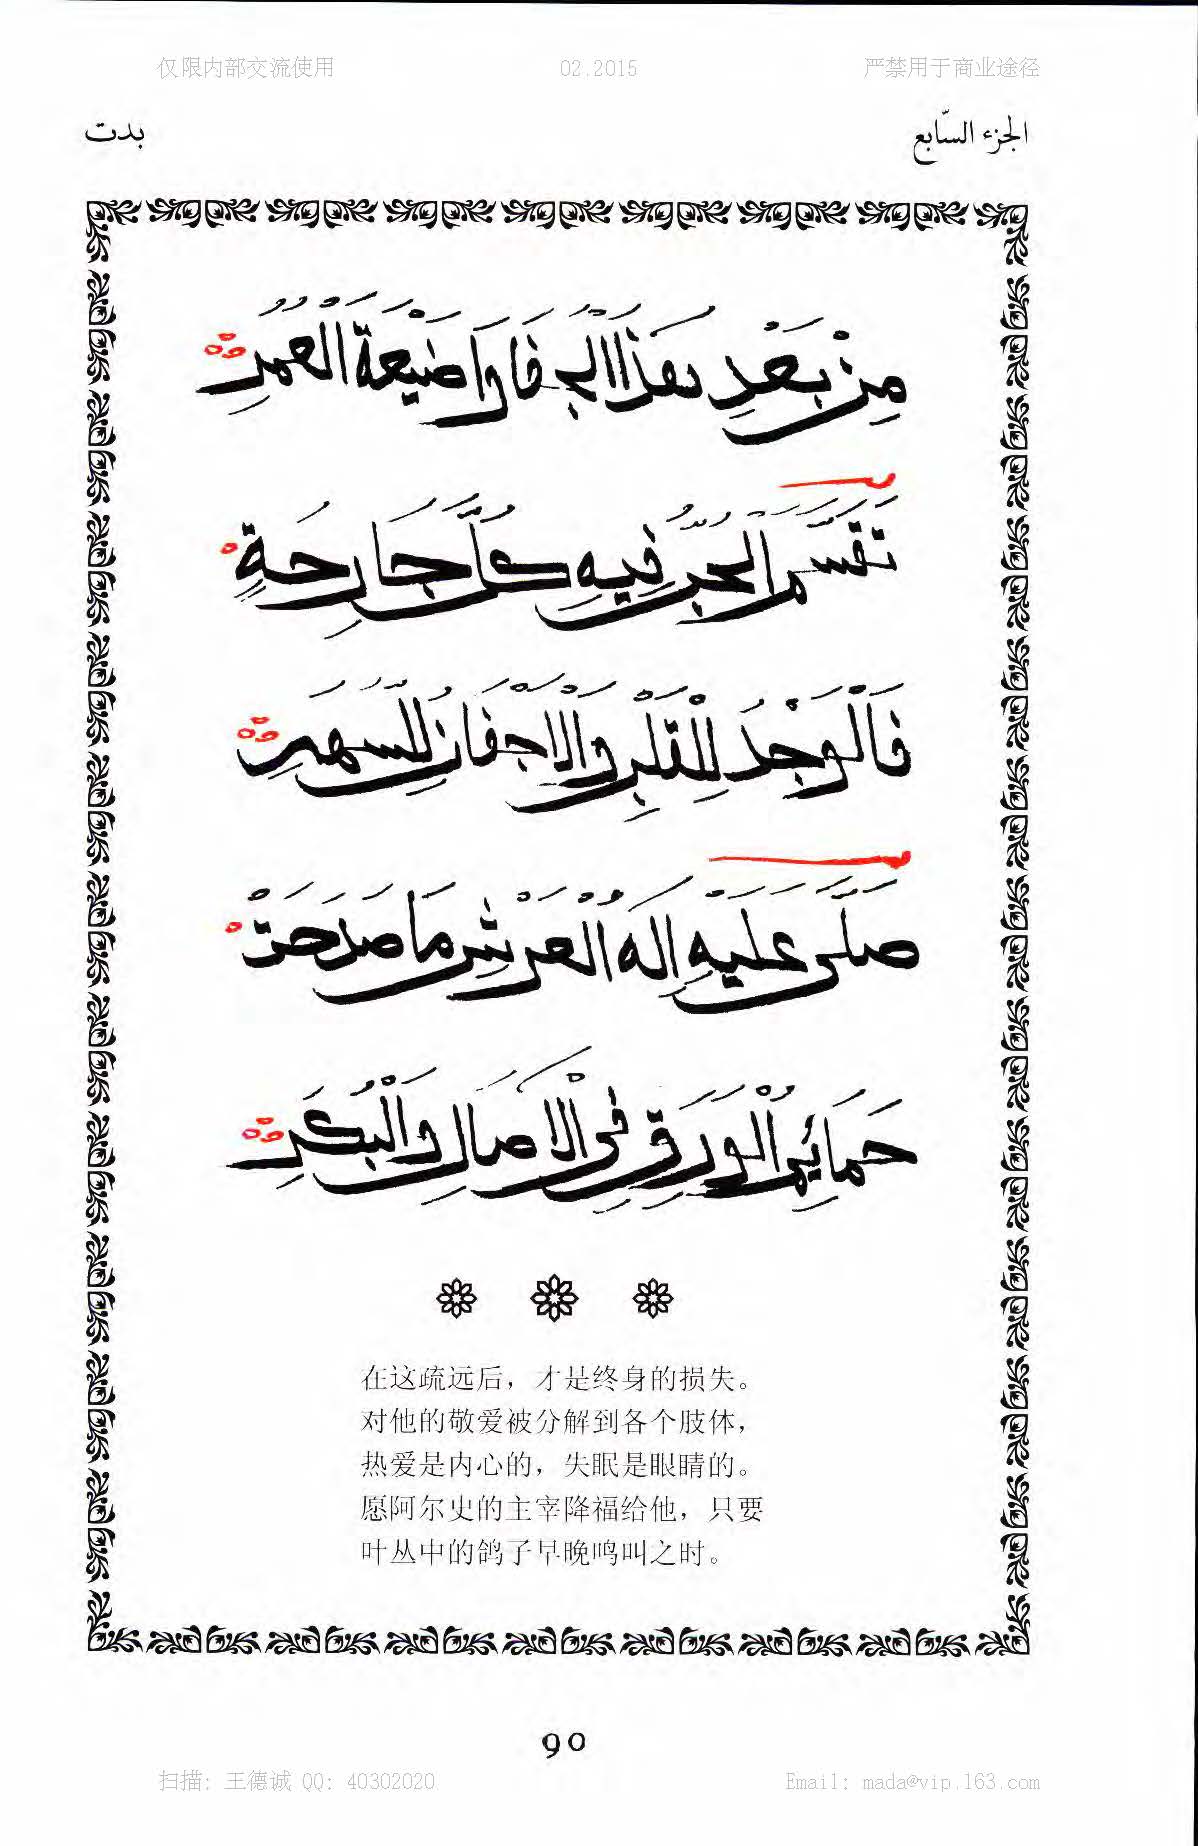 仅限内部交流使用 02.2015 严禁用于商业途径
الجزء السّابع بدت
مِنْ بَعْدِ هَذَا الْجَفَا وَاضَيْعَةَ الْعُمُرِ
تَقَسَّمَ الْحُبُّ فِيهِ كُلَّ جَارِحَةٍ
فَالْوَجْدُ لِلْقَلْبِ وَالْأَجْفَانُ لِلسَّهَرِ
صَلَّى عَلَيْهِ إِلَهُ الْعَرْشِ مَا صَدَحَتْ
حَمَائِمُ الْوَرَقِ فِي الْآصَالِ وَالْبُكَرِ
在这疏远后，才是终身的损失。
对他的敬爱被分解到各个肢体，
热爱是内心的，失眠是眼睛的。
愿阿尔史的主宰降福给他，只要
叶丛中的鸽子早晚鸣叫之时。
90
扫描: 王德诚 QQ: 40302020 Email: mada@vip.163.com